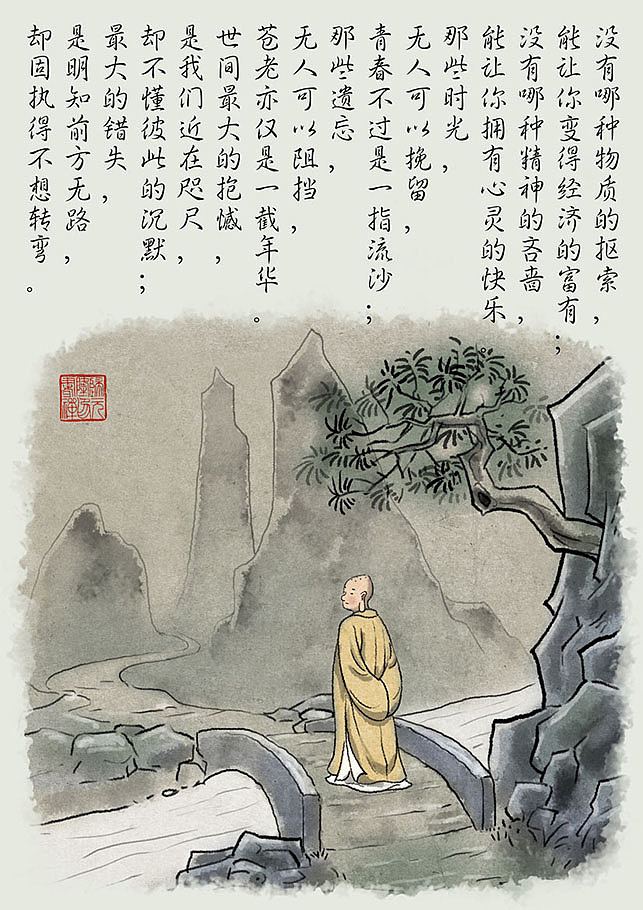 没有哪种物质的抠索，
能让你变得经济的富有；
没有哪种精神的吝啬，
能让你拥有心灵的快乐。
那些时光，
无人可以挽留，
青春不过是一指流沙；
那些遗忘，
无人可以阻挡，
苍老亦仅是一截年华。
世间最大的抱憾，
是我们近在咫尺，
却不懂彼此的沉默；
最大的错失，
是明知前方无路，
却固执得不想转弯。